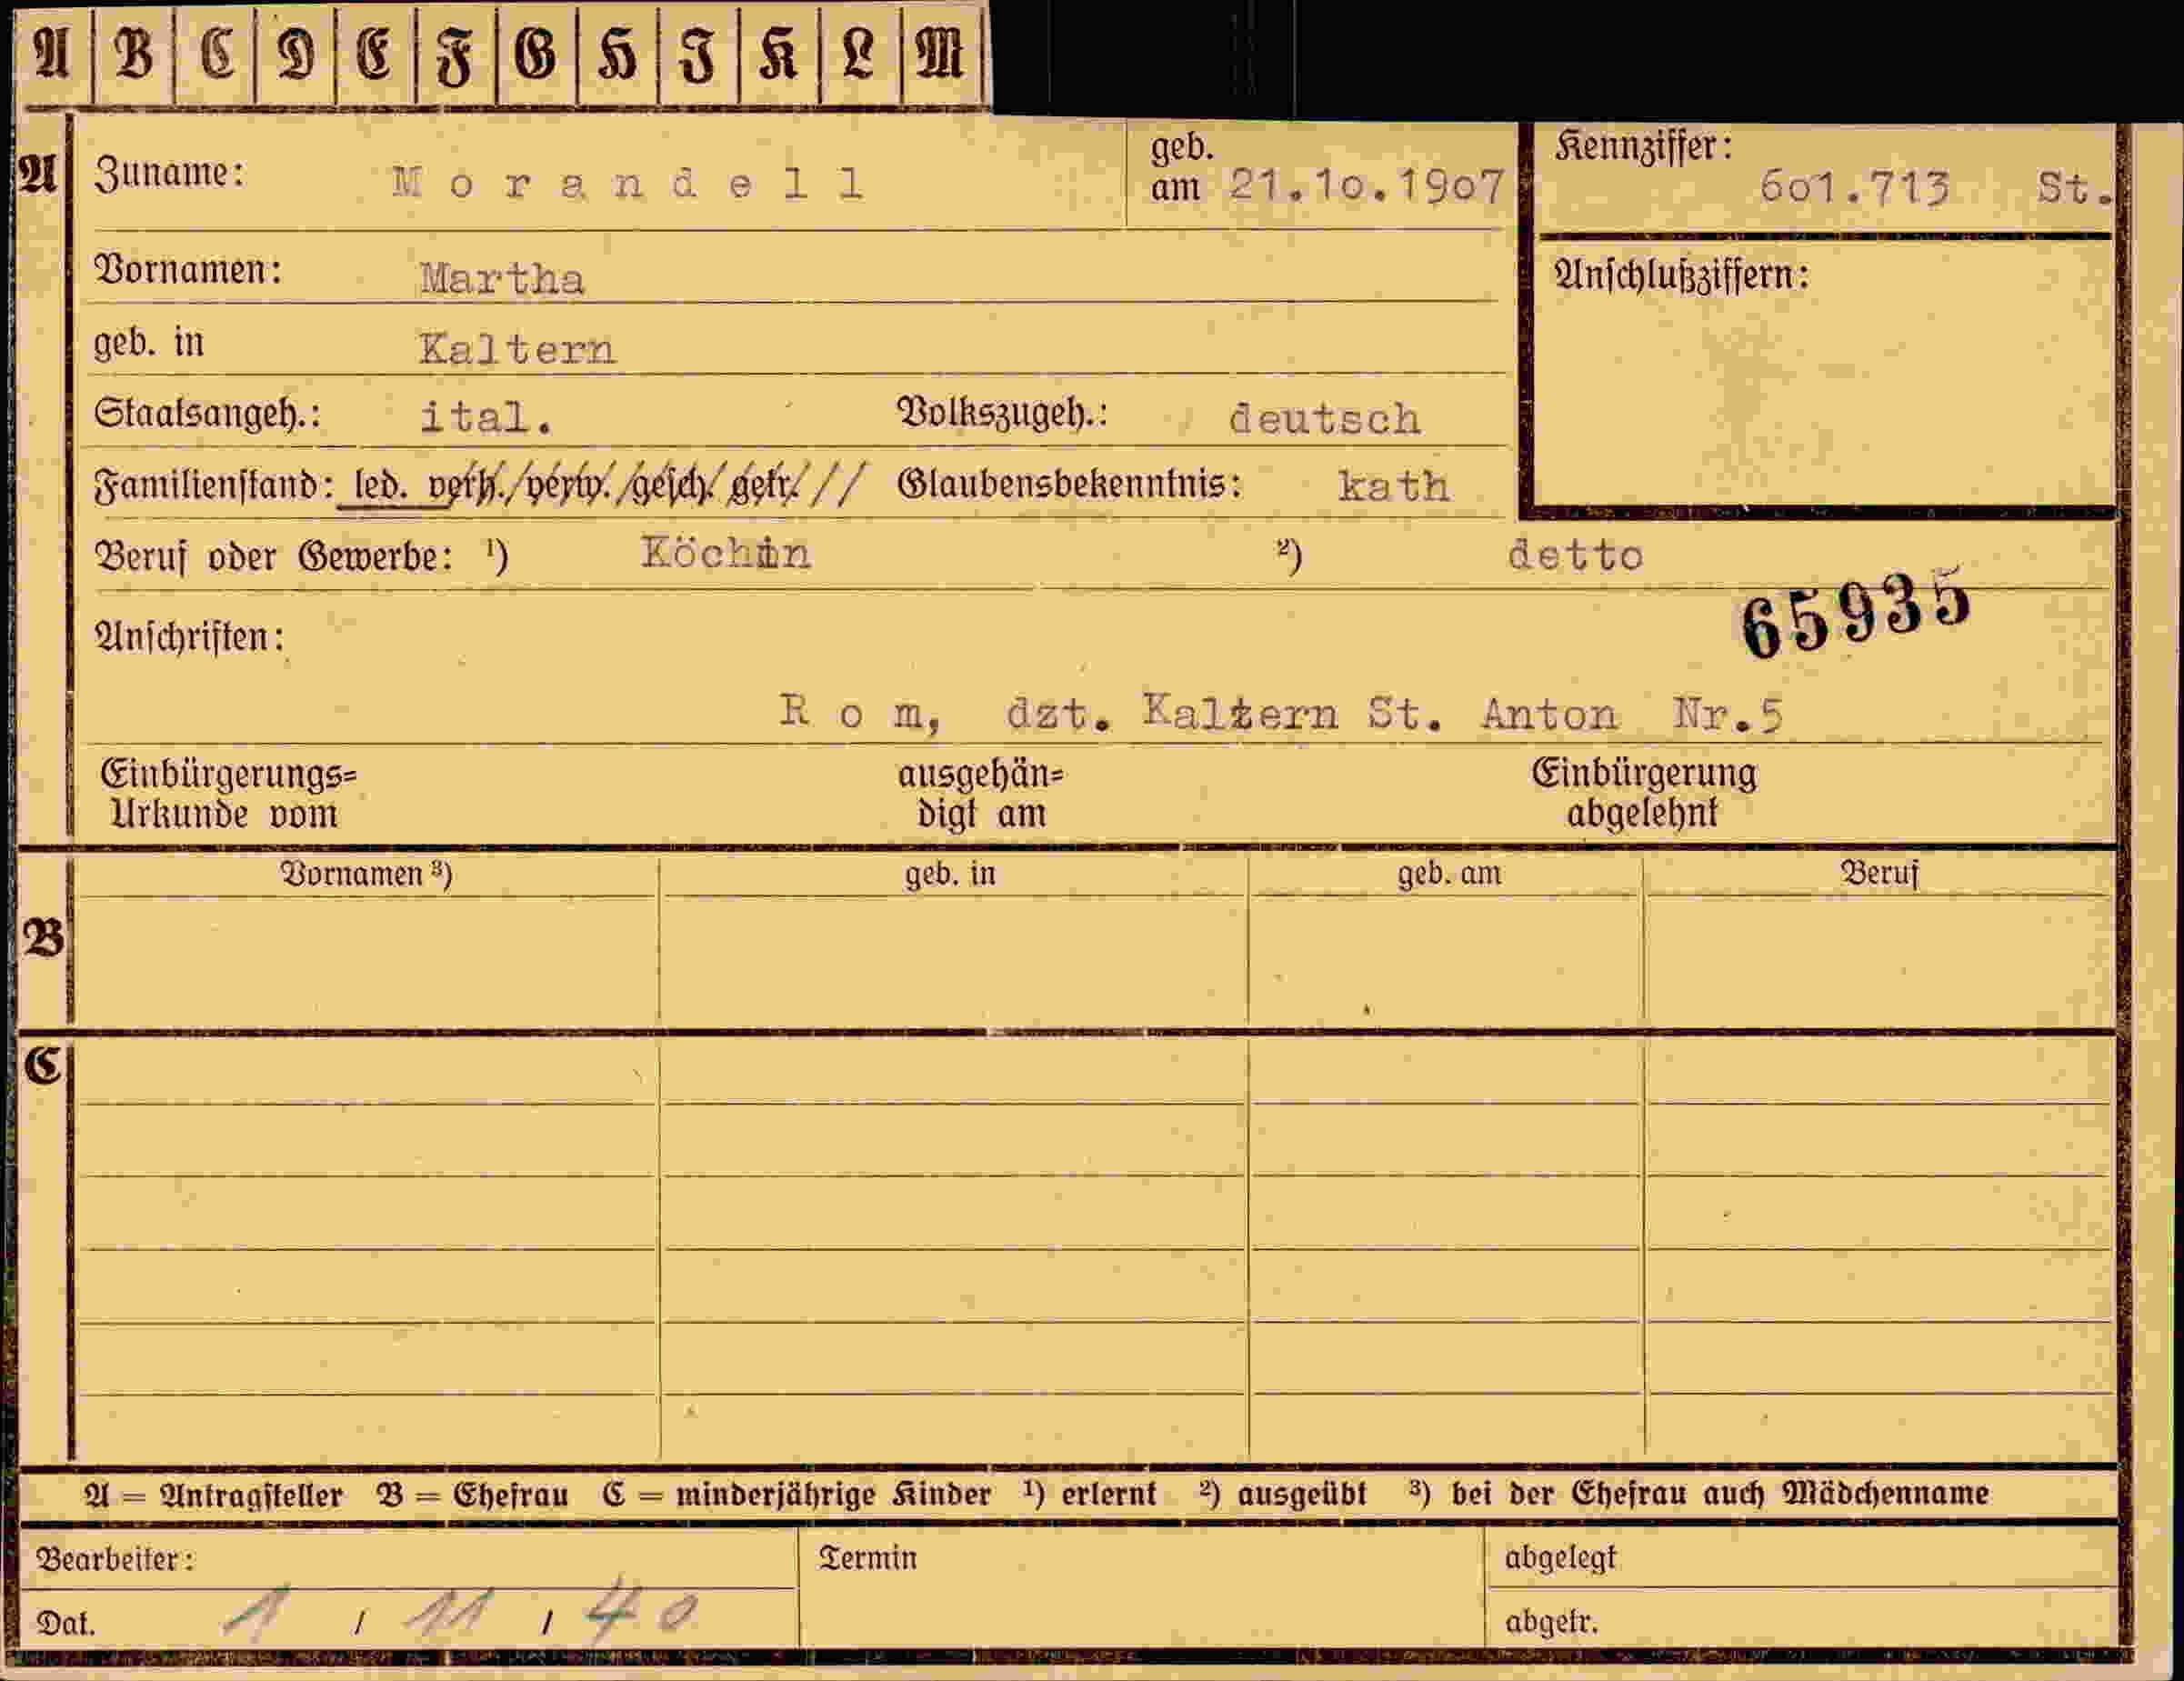 A B C D E F G H I K L M
A Zuname: Morandell geb. am 21.1o.19o7 Kennziffer: 6o1.713 St.
Vornamen: Martha Anschlußziffern:
geb. in Kaltern
Staatsangeh.: ital. Volkszugeh.: deutsch
Familienstand: led. verh./verw./gesch./getr. // Glaubensbekenntnis: kath
Beruf oder Gewerbe: ¹) Köchin ²) detto
65935
Anschriften:
Rom, dzt. Kaltern St. Anton Nr.5
Einbürgerungs= ausgehän= Einbürgerung
Urkunde vom digt am abgelehnt
Vornamen ³) geb. in geb. am Beruf
B
C
A = Antragsteller B = Ehefrau C = minderjährige Kinder ¹) erlernt ²) ausgeübt ³) bei der Ehefrau auch Mädchenname
Bearbeiter: Termin abgelegt
Dat. 1 / 11 / 40 abgetr.